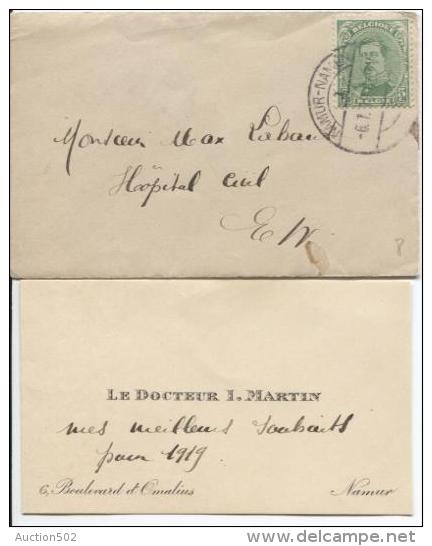 BELGIQUE
BELGIË
NAMUR-NAM
-6.1
Monsieur Max
Hôpital Civil
E/V.
LE DOCTEUR I. MARTIN
mes meilleurs souhaits
pour 1919.
6, Boulevard d'Omalius
Namur
Auction502
delcampe.net